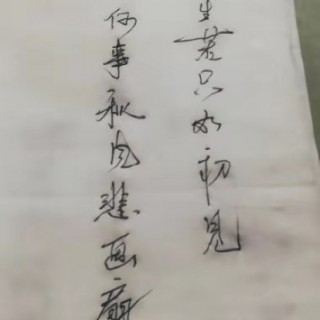 生若只如初见
何事秋风悲画扇